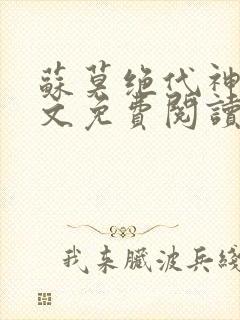 蘇莫絕代神
文免費閱讀
我來臟波兵綫